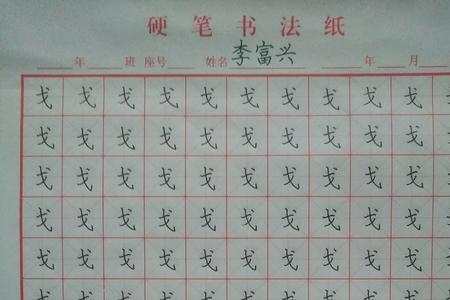 硬笔书法纸
年 班 座号 姓名 李富兴 年 月
戈 戈 戈 戈 戈 戈 戈 戈 戈 戈
戈 戈 戈 戈 戈 戈 戈 戈 戈 戈
戈 戈 戈 戈 戈 戈 戈 戈 戈 戈
戈 戈 戈 戈 戈 戈 戈 戈 戈 戈
戈 戈 戈 戈 戈 戈 戈 戈 戈 戈